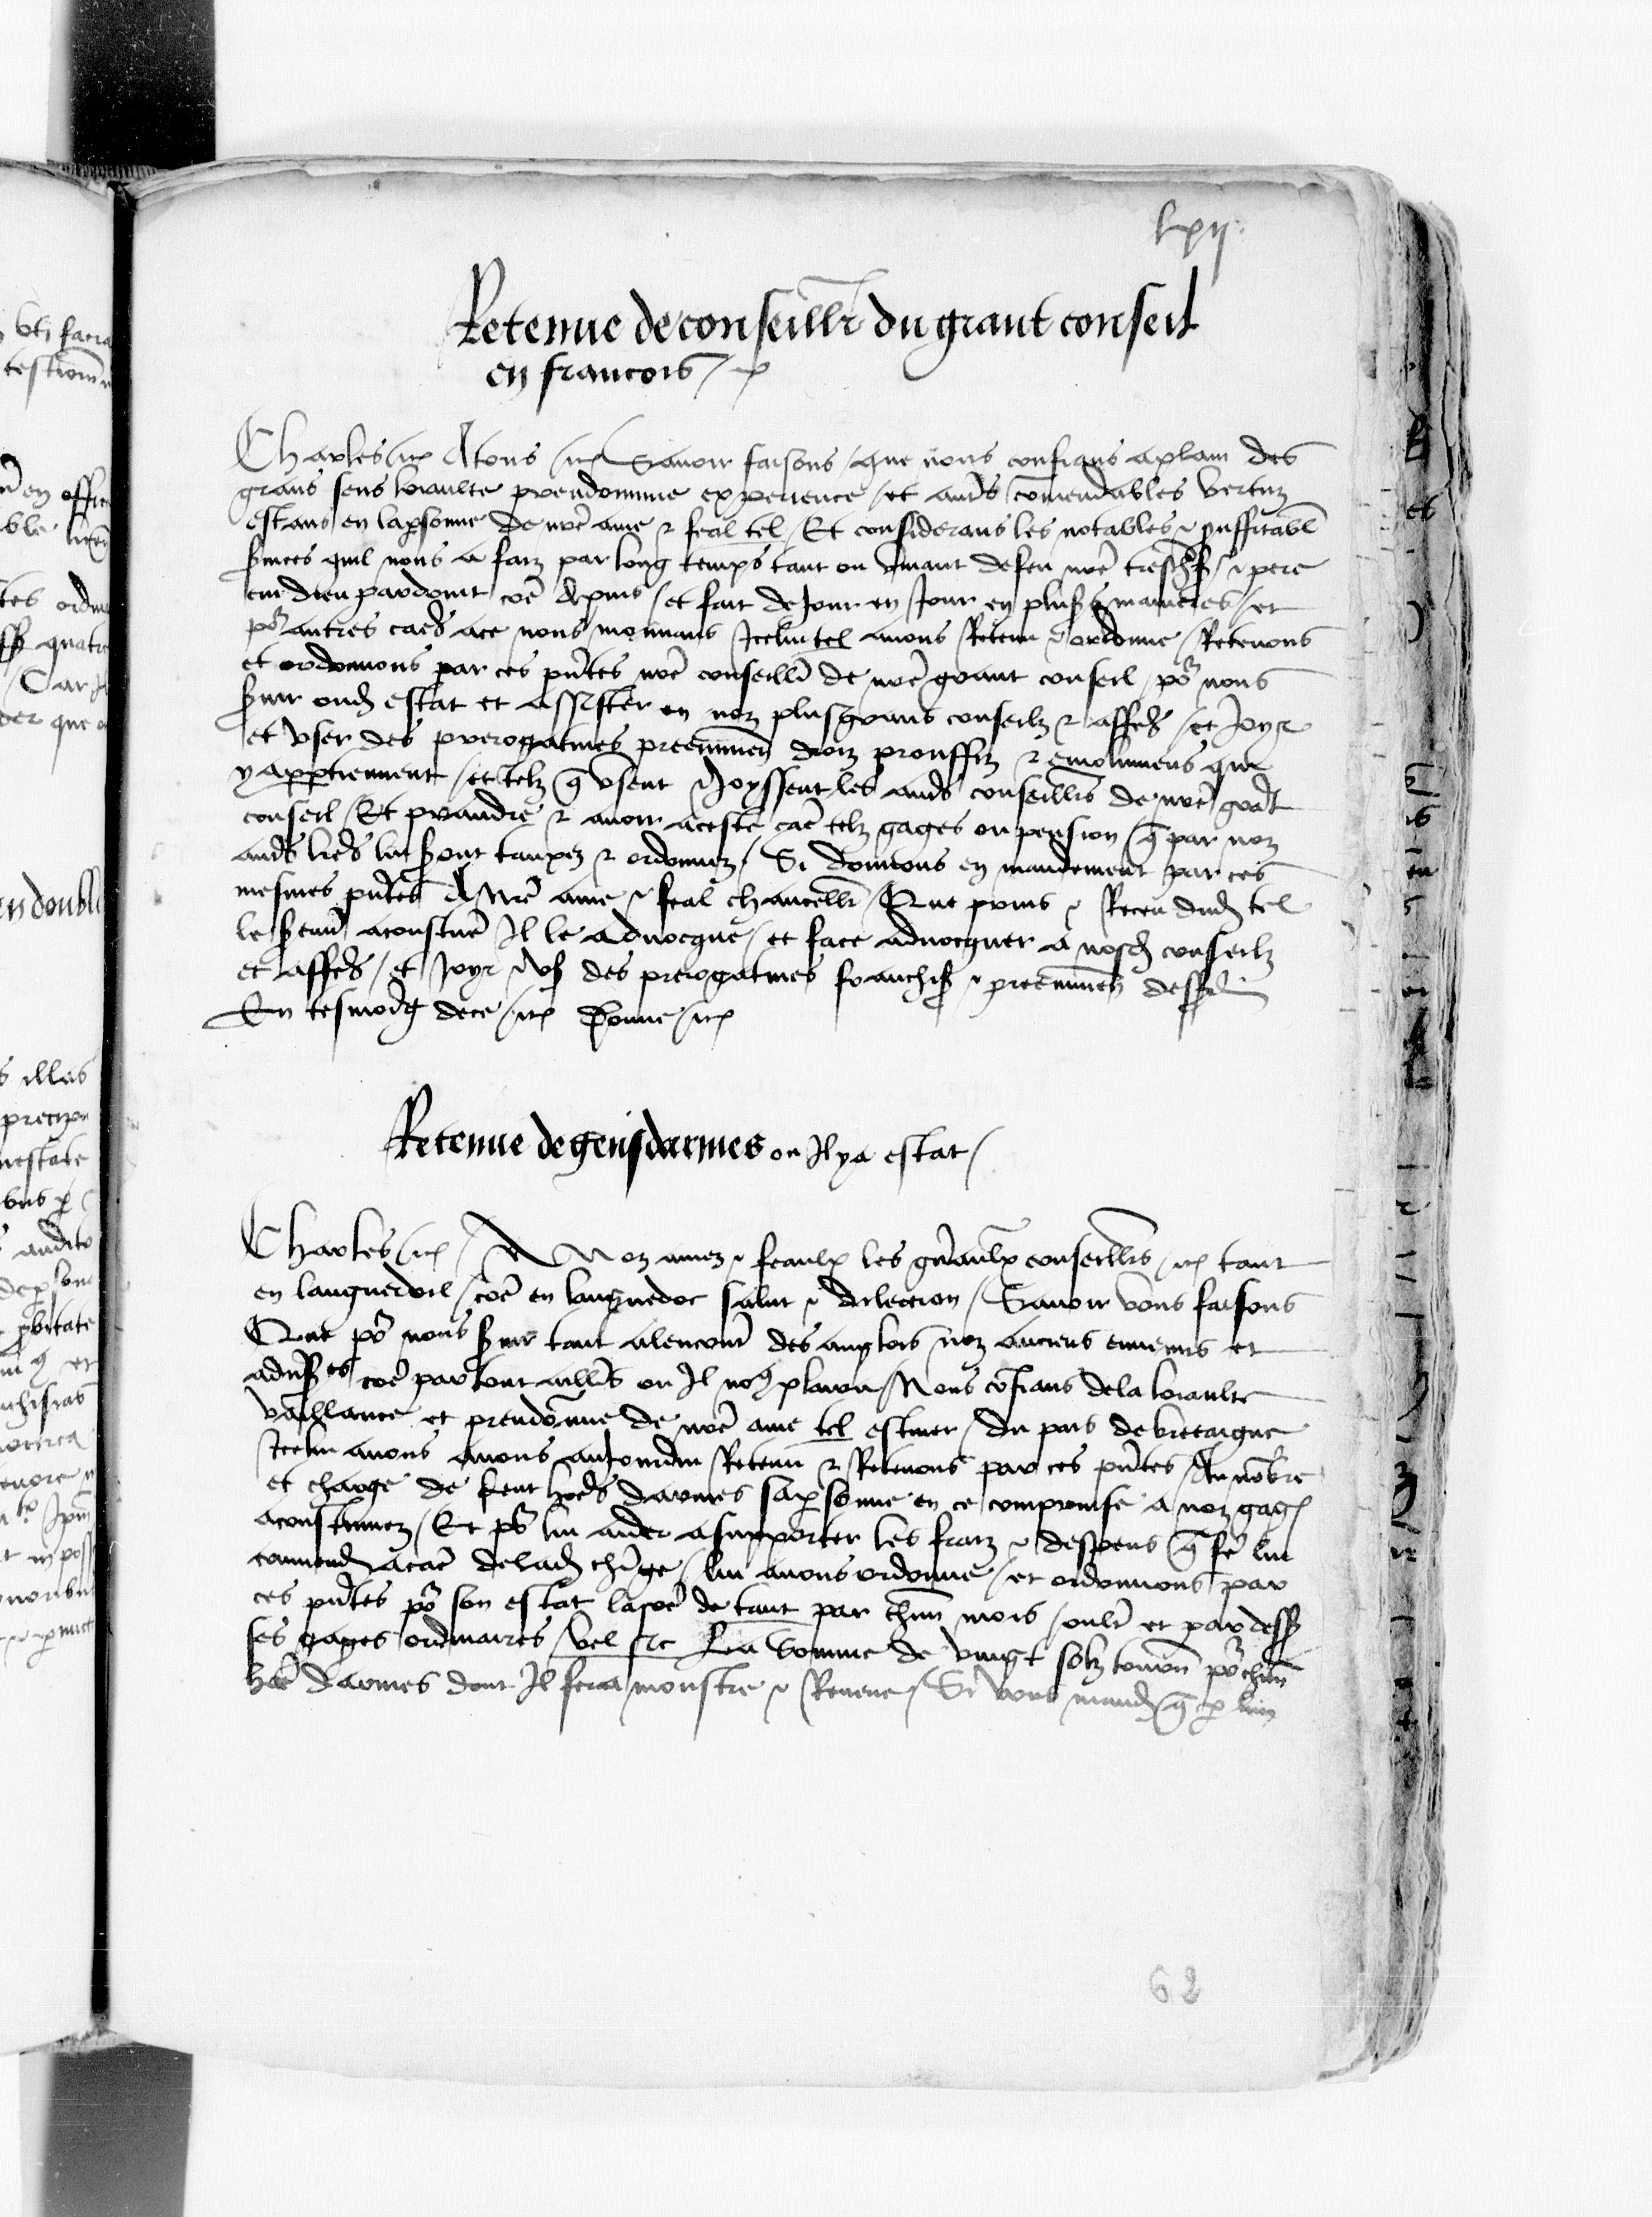 lxii
Retenue de conseillr du grant conseil
en francois
Charles etc A tous etc Savoir faisons / que nous confians aplain des
grans sens loiaulte preudommie experience / et autrs comendables vertuz
estans en la psonne de nre ame & feal tel / Et considerans les notables & prouffitabl
svices quil nous a faiz par long temps tant ou vivant de feu nre treschr s & pere
cui dieu pardoint coe depuis / et fait de jour en jour en plusrs manieres / et
por autres causes ace nous mouvans Icelui tel avons Retenu & ordonne / Retenons
et ordonnons par ces pntes nre conseillr de nre grant conseil por nous
svir oud estat et assister en noz plus grans conseilz & affes / et Joyr
et User des prerogatives preeminen droiz prouffiz & emolumens qui
y apptiennent / et telz q usent & Joyssent les autrs conseillrs de nre grant
conseil / Et prandre & avoir a ceste cae telz gages ou pension q par noz
autrs lres lui sont tauxez & ordonnez / Si donnons en mandement par ces
mesmes pntes A Nre ame & feal chancellr / Que prins & Receu dud tel
le serm acoustue Il le advocque / et face advocquer a nosd conseilz
et affes / et Joyr & us des prerogatives franchis & preeminen dess
En tesmoing de ce etc Donne etc
Retenue de gensdarmes ou Il ya estat
Charles etc A Noz amez & feaulx les gnraulx conseillrs etc tant
en languedoil / coe en languedoc salut & dilection / Savoir vous faisons
Que por nous svir tant alencontr des anglois noz anciens ennemis et
advsres coe partout aillrs ou Il no9 plaira / Nous cofians dela loiaulte
vaillance et preudomie de nre ame tel escuier / du pais de bretaigne
Icelui avons avons aujourdui Retenu & Retenons par ces pntes / Au nobre
et charge de cent hoes darmes sa psonne en ce comprinse a noz gages
acoustumez / Et por lui aider a supporter les fraiz & despens q fe lui
convend acae delad chrge / lui avons ordonne / et ordonnons par
ces pntes por son estat la soe de tant par chun mois / oultr et par dess
ses gages ordinaires / vel sic La somme de vingt solz tourn por chun
hoe darmes dont Il fera monstre & Reveue / Si vous mand q p luy
62